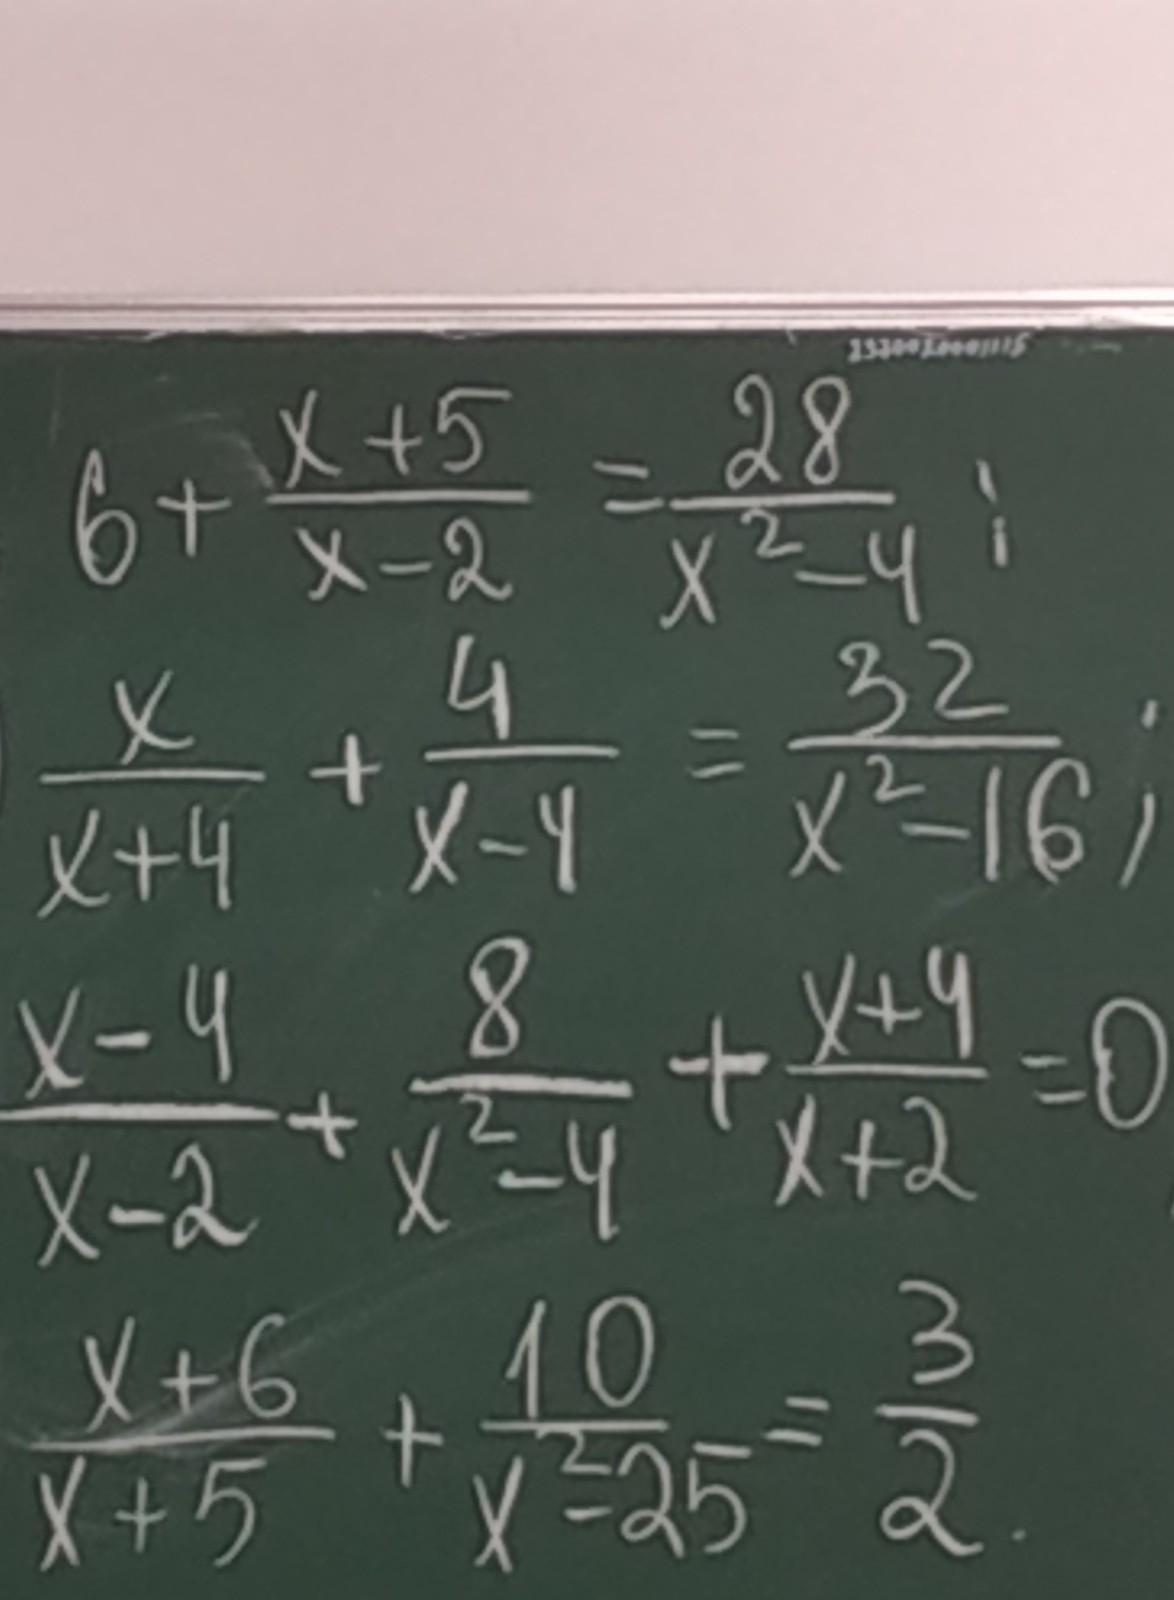 6 + (x+5)/(x-2) = 28/(x²-4) ;
x/(x+4) + 4/(x-4) = 32/(x²-16) ;
(x-4)/(x-2) + 8/(x²-4) + (x+4)/(x+2) = 0
(x+6)/(x+5) + 10/(x²-25) = 3/2 .